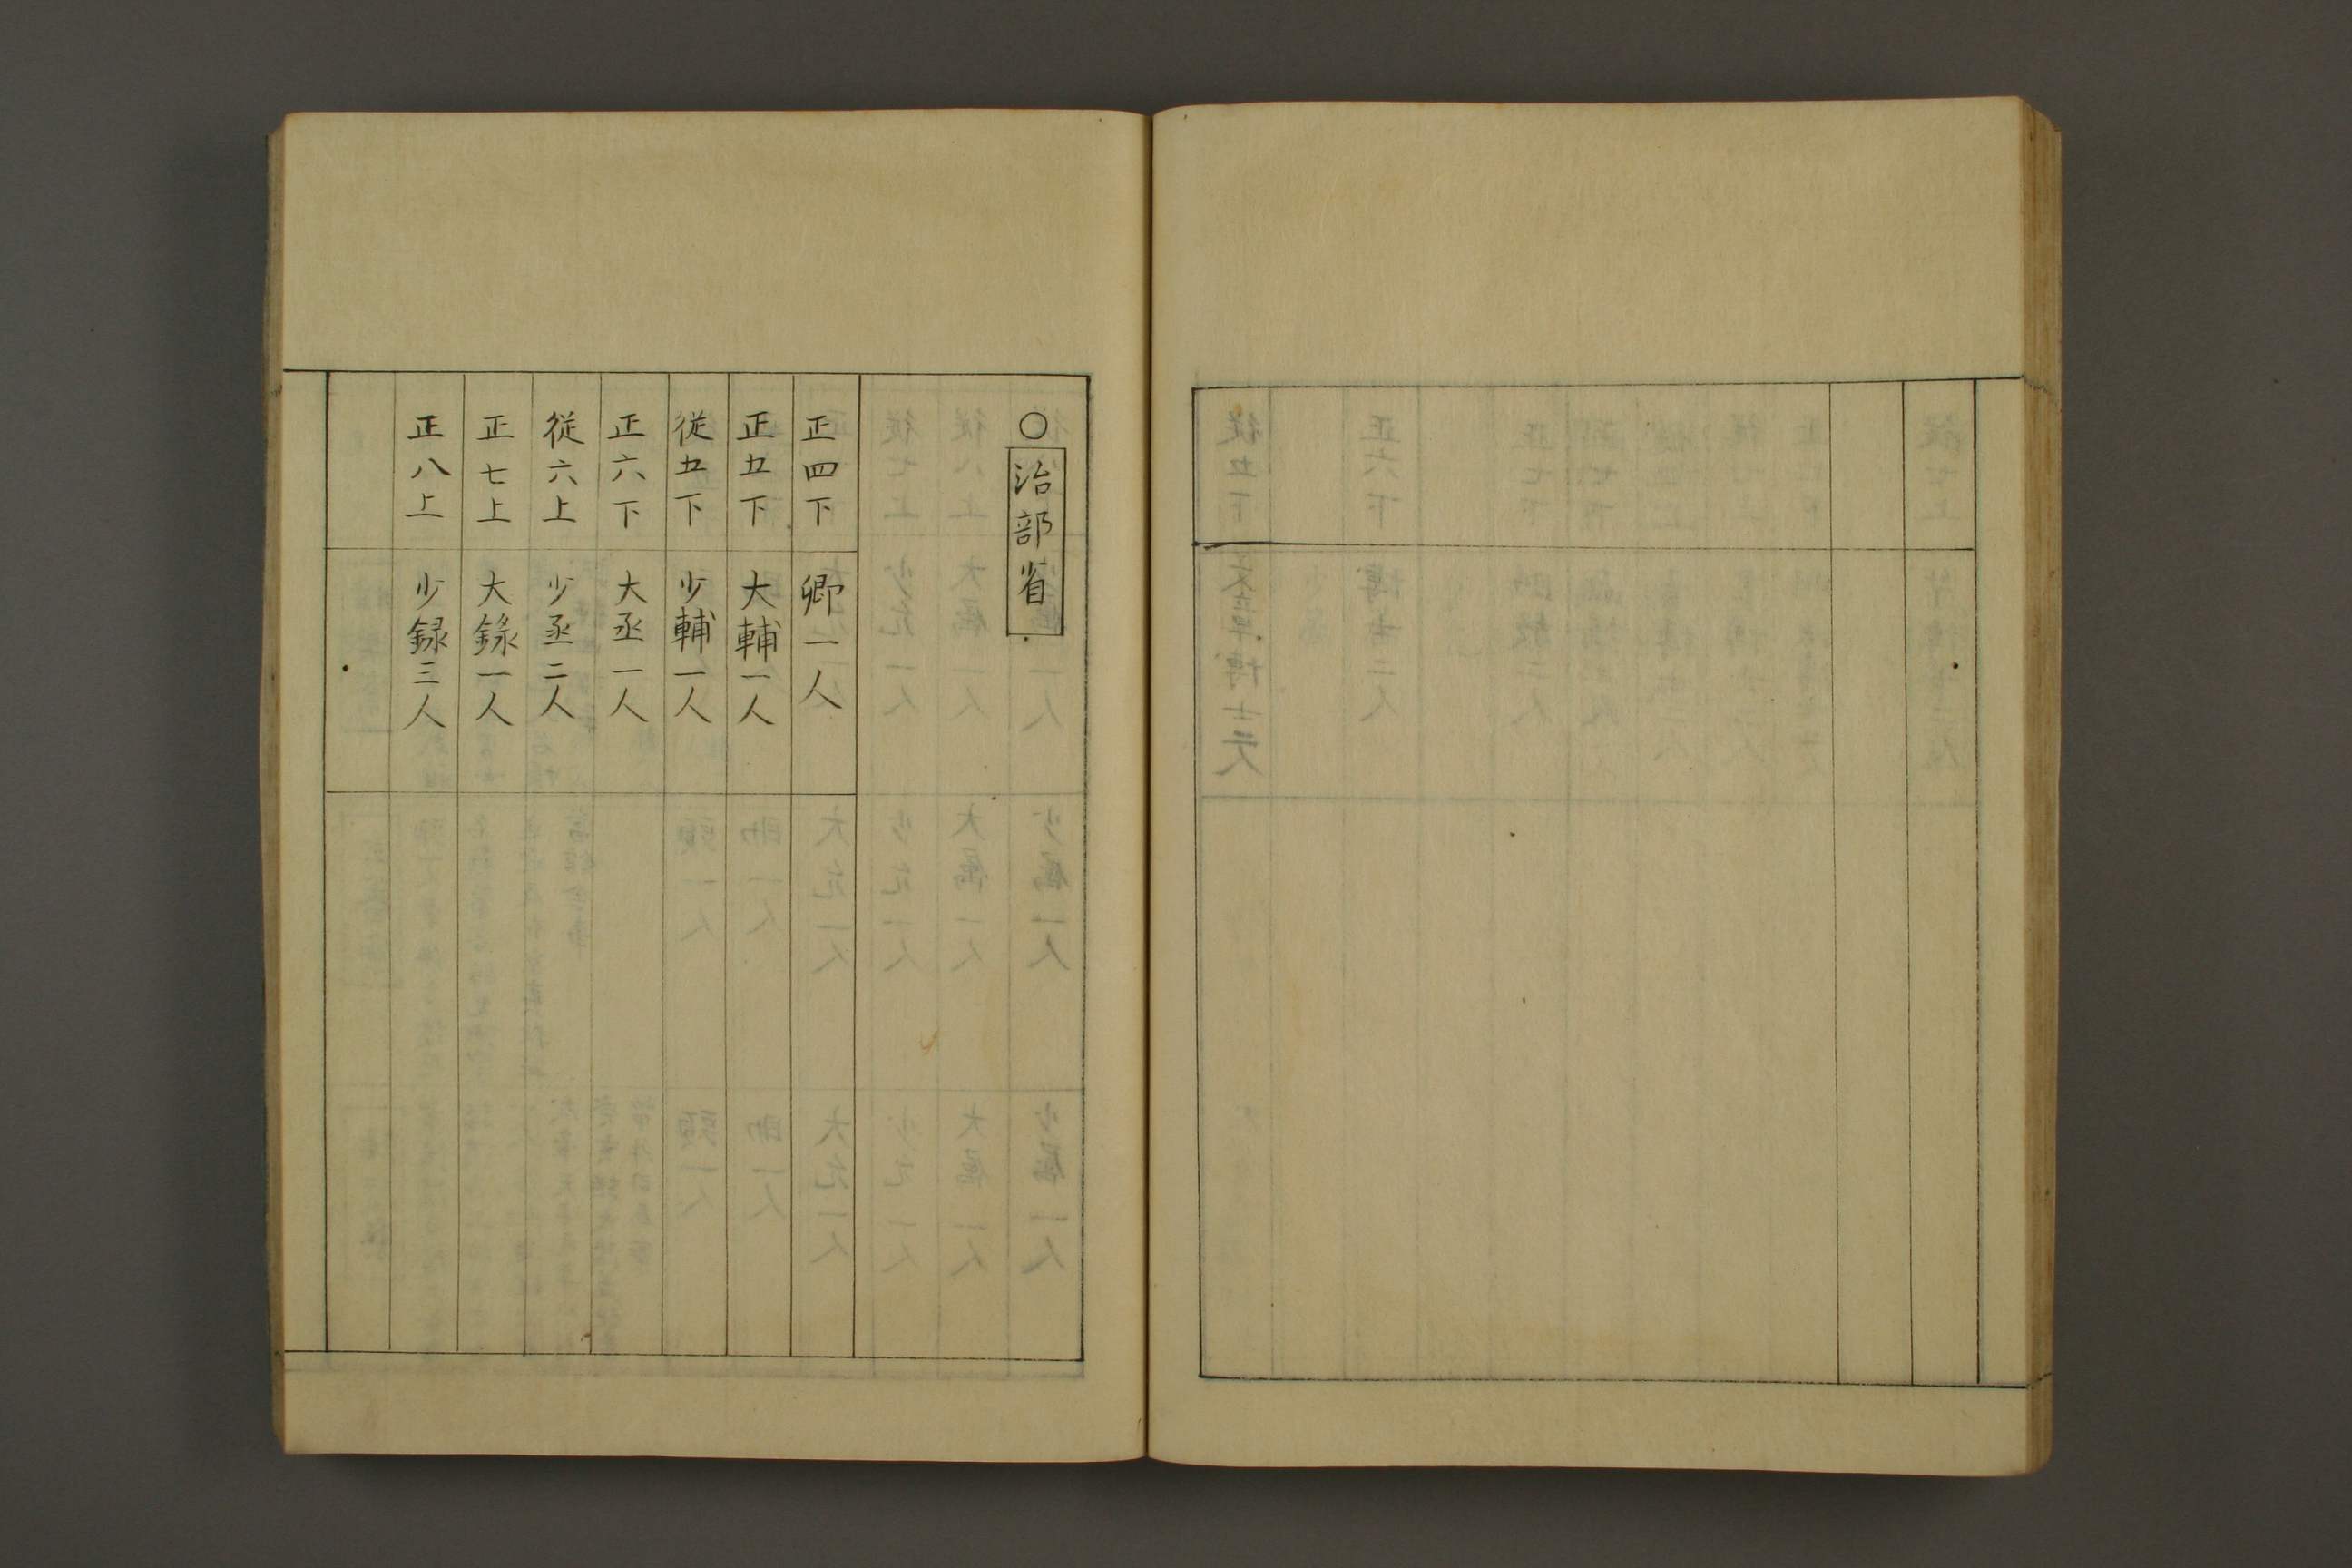 ○治部省
正四下 卿一人
正五下 大輔一人
従五下 少輔一人
正六下 大丞一人
従六上 少丞二人
正七上 大録一人
正八上 少録三人